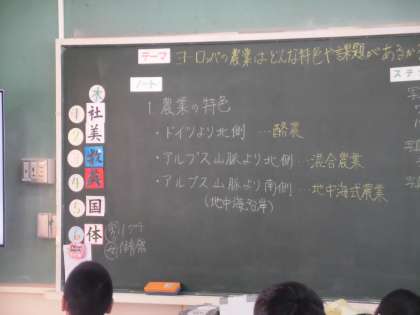 テーマ ヨーロッパの農業はどんな特色や課題があるか
ノート
ステ
1. 農業の特色
・ドイツより北側 …酪農
・アルプス山脈より北側 …混合農業
・アルプス山脈より南側 …地中海式農業
(地中海沿岸)
木
1 社
2 美
3 数
4 英
5 国
6 体